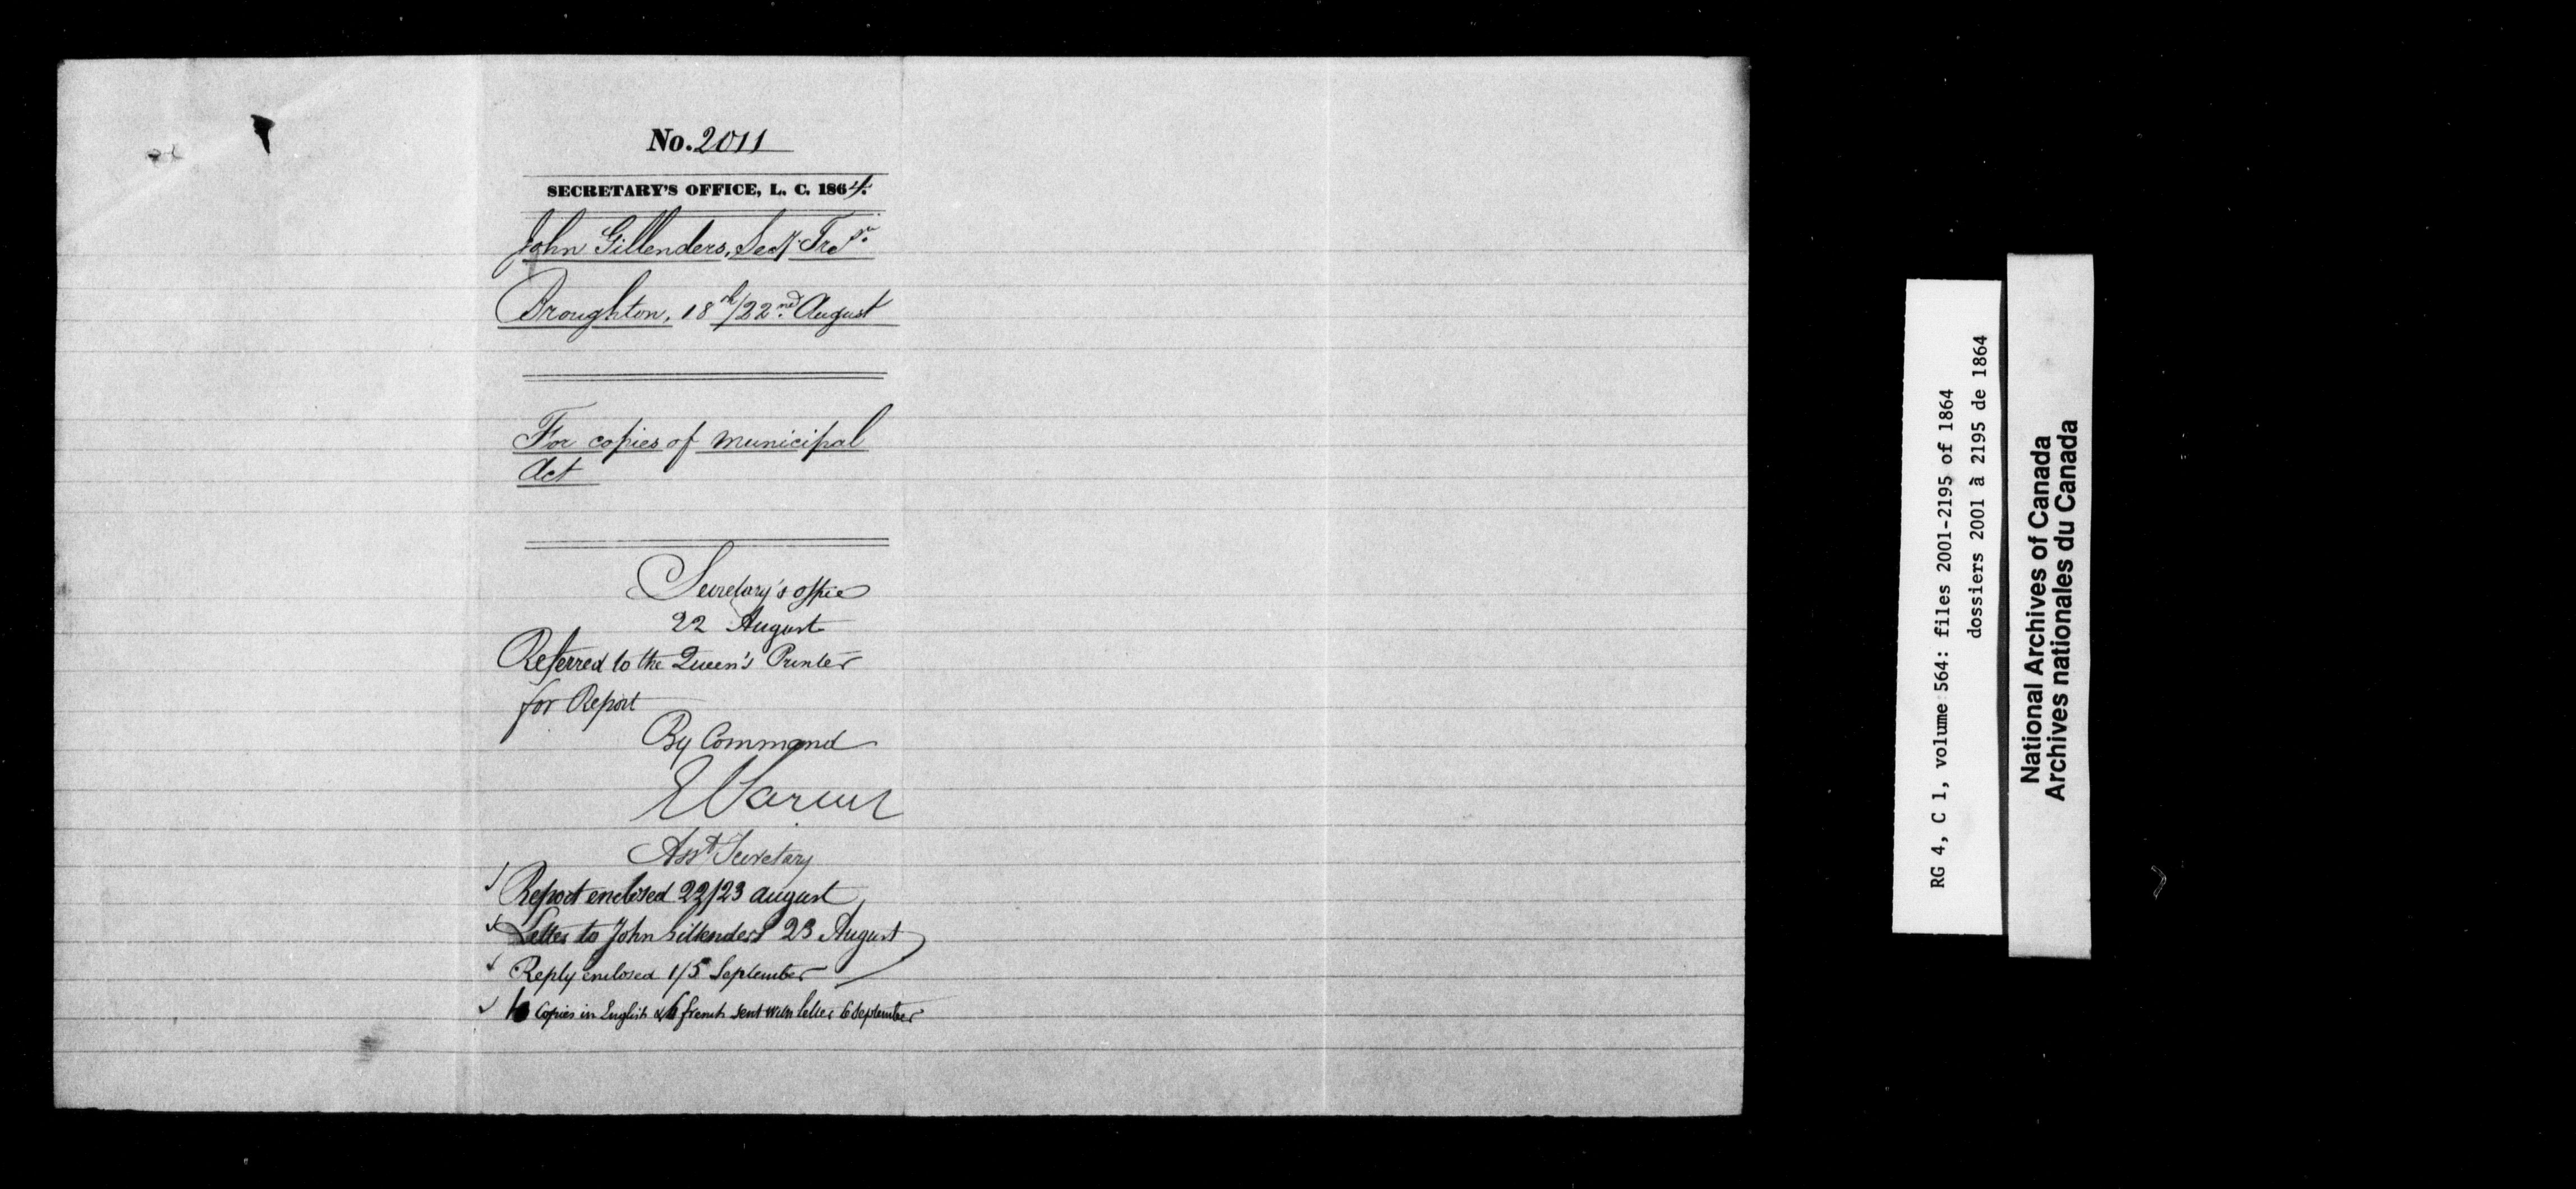 No. 2011
SECRETARY'S OFFICE, L. C. 1864.
John Gillenders, Secy. Tresr.
Broughton, 18th/22nd. August
For copies of Municipal
Act
Secretary's office
22 August
Referred to the Queen's Printer
for Report
By Command
Asst Secretary
Report enclosed 22/23 august
Letter to John Gillenders 23 August
Reply enclosed 1/5 September
Copies in English & 6 french sent with letter 6 September
RG 4, C 1, volume 564: files 2001-2195 of 1864
dossiers 2001 à 2195 de 1864
National Archives of Canada
Archives nationales du Canada